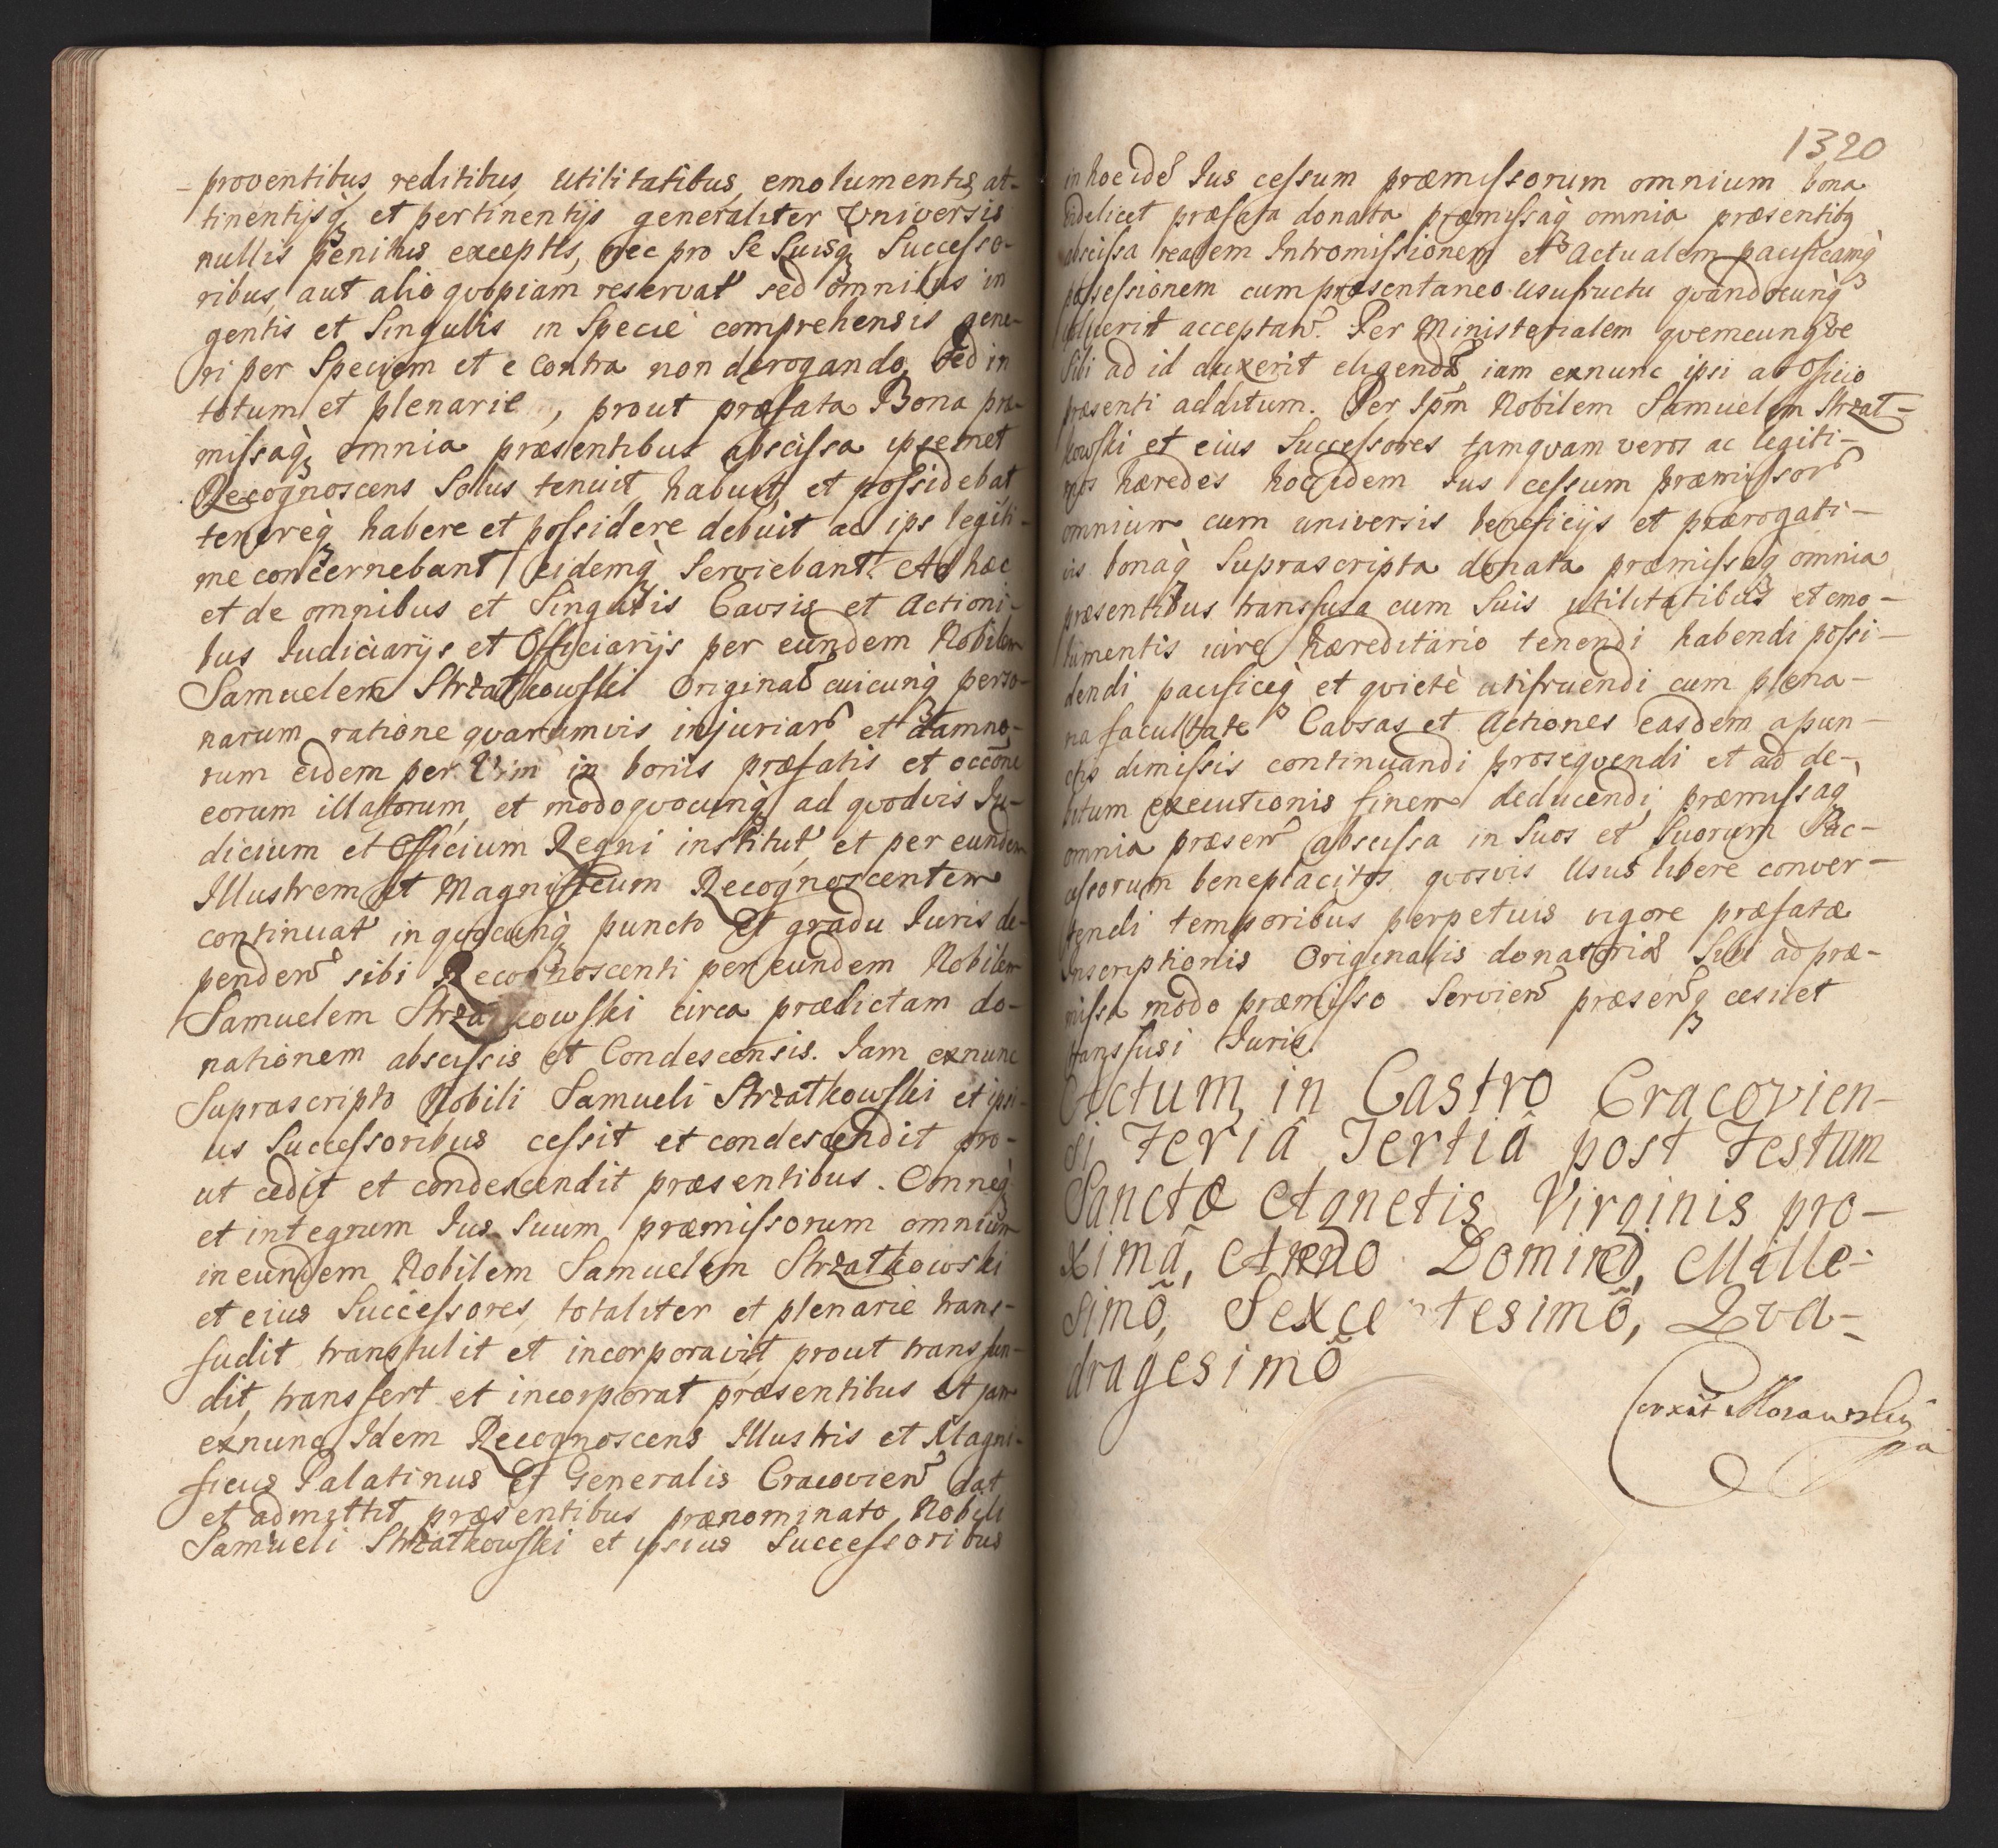 - proventibus, reditibus, Utilitatibus, emolumentis, at-
tinentijsq3 et pertinentijs generaliter Universis
nullis penitus exceptis, nec pro Se Suisq3 Successo-
ribus, aut alio qvopiam reservat sed omnibus in
gentis et Singulis in Specie comprehensis gene-
ri per Speciem et e contra non derogando, Sed in
totum et plenarie, prout præfata Bona præ-
missaq3 omnia præsentibus abscissa ipsemet
Recognoscens Solus tenuit, habuit et possidebat
tenereq3 habere et possidere debuit ac ips legiti-
me concernebant eidemq3 Serviebant. Ad hæc
et de omnibus et Singulis Cavsis et Actioni-
bus Iudiciarijs et Officiarijs per eundem Nobilem
Samuelem Strzałkowski Original cuicunq3 perso-
narum ratione qvarumvis injuriar et damno-
rum eidem per in bonis præfatis et occõne
eorum illatorum, et modoqvocunq3 ad qvodvis Iu-
dicium et Officium Regni institut et per eundem
Illustrem et Magnificum Recognoscentem
continuat in qvocunq3 puncto et gradu Iuris de-
penden sibi Recognoscenti per eundem Nobilem
Samuelem Strzałkowski circa prædictam do-
nationem abscissis et Condescensis. Iam exnunc
Suprascripto Nobili Samueli Strzałkowski et ipsi-
us Successoribus cessit et condescendit pro-
ut cedit et condescendit præsentibus. Omneq3
et integrum Ius Suum præmissorum omnium
in eundem Nobilem Samuelem Strzałkowski
et eius Successores, totaliter et plenarie trans-
fudit, transtulit et incorporavit, prout transfun-
dit, transfert et incorporat præsentibus et jam
exnunc Idem Recognoscens Illustris et Magni-
ficus Palatinus et Generalis Cracovien dat
et admittit præsentibus prænominato Nobili
Samueli Strzałkowski et ipsius Successoribus
1320
in hoc idē Ius cessum præmissorum omnium bona
videlicet præfata donata præmissaq3 omnia præsentibq
abscissa realem Intromissionem et Actualem pacificamq3
possessionem cum præsentaneo usufructu qvandocunq3
voluerit acceptan. Per Ministerialem qvemcunqve
Sibi ad id duxerit eligendū iam exnunc ipsi ab Officio
præsenti additum. Per Ipm Nobilem Samuelem Strzał-
kowski et eius Successores tamqvam veros ac legiti-
mos hæredes hoc idem Ius cessum præmissor
omnium cum universis beneficijs et prærogati-
vis bonaq3 Suprascripta donata præmissaq3 omnia
præsentibus transfusa cum Suis utilitatibus et emo-
lumentis iure hæreditario tenendi habendi possi-
dendi pacificeq3 et qvietè utifruendi cum plena-
ria facultate Cavsas et Actiones easdem a pun-
ctis dimissis continuandi proseqvendi et ad de-
bitum executionis finem deducendi, præmissaq3
omnia præsen abscissa in Suos et Suorum Suc-
cessorum beneplacitos qvosvis Usus libere conver-
tendi temporibus perpetuis vigore præfatæ
Inscriptionis Originalis donatoriæ Sibi ad præ-
missa modo præmisso Servien præsenq3 cæs et
transfusi Iuris.
Actum in Castro Cracovien-
si Feriâ Tertiâ post Festum
Sanctæ Agnetis Virginis pro-
ximâ, Anno Domini, Mille-
simõ, Sexcentesimõ, Qva-
dragesimõ